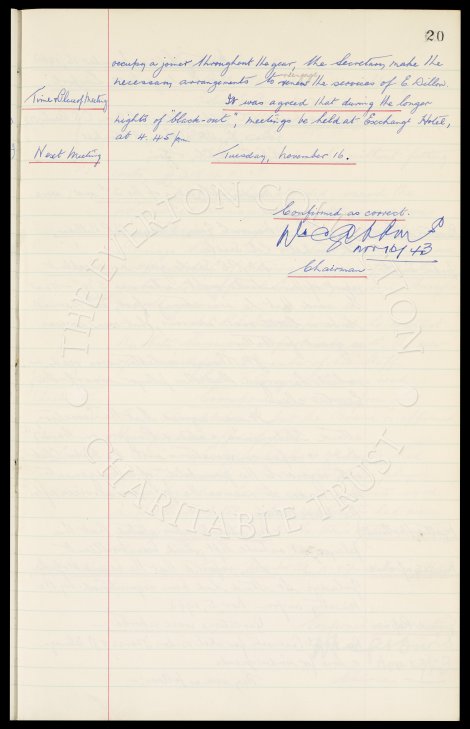 20
occupy a joiner throughout the year, the Secretary make the
necessary arrangements to the services of E. Dillon
Time & Place of Meeting It was agreed that during the longer
nights of "black-out", meetings be held at Exchange Hotel,
at 4.45 pm
Next Meeting Tuesday, November 16.
Confirmed as correct.
Nov 16/43
Chairman
THE EVERTON COLLECTION
CHARITABLE TRUST